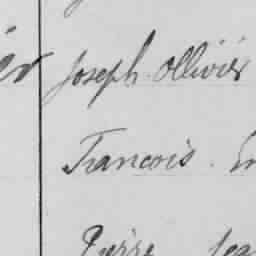 Joseph Ollivier
Francois
Pierre